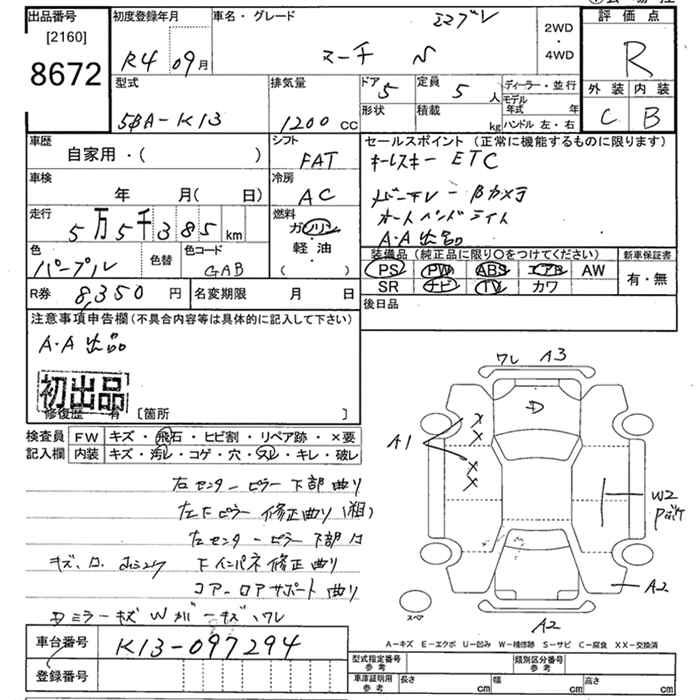 出品番号
[2160]
8672
初度登録年月
R4 09月
車名・グレード
マーチ N
2WD
・
4WD
評価点
R
外装 内装
C B
型式
5BA-K13
排気量
1200 CC
ドア 5
形状
定員 5 人
積載 kg
ディーラー・並行
モデル年式 年
ハンドル 左・右
車歴
自家用・( )
シフト
FAT
セールスポイント (正常に機能するものに限ります)
キーレスキー ETC
オートハンドライト
A・A出品
車検
年 月( 日)
冷房
AC
走行
5万5千385km
燃料
ガソリン
軽・油
( ・ )
色
パープル
色替
色コード
GAB
装備品 (純正品に限り○をつけてください)
PS PW ABS エアB AW
SR ナビ TV カワ
新車保証書
有・無
R券 8,350 円
名変期限 月 日
後日品
注意事項申告欄(不具合内容等は具体的に記入して下さい)
A・A出品
初出品
修復歴 有 [箇所 ]
検査員記入欄
FW キズ・飛石・ヒビ割・リペア跡・×要
内装 キズ・汚レ・コゲ・穴・スレ・キレ・破レ
右センターピラー下部曲り
左Fピラー修正曲り(粗)
左センターピラー下部
下インパネ修正曲り
コアーロアサポート曲り
ワレ A3
D
A1
W2
A2
A2
スペア
車台番号 K13-097294
登録番号
A−キズ E−エクボ U−凹み W−補修跡 S−サビ C−腐食 XX−交換済
型式指定番号 参考
類別区分番号 参考
車庫証明用 参考
長さ cm 幅 cm 高さ cm